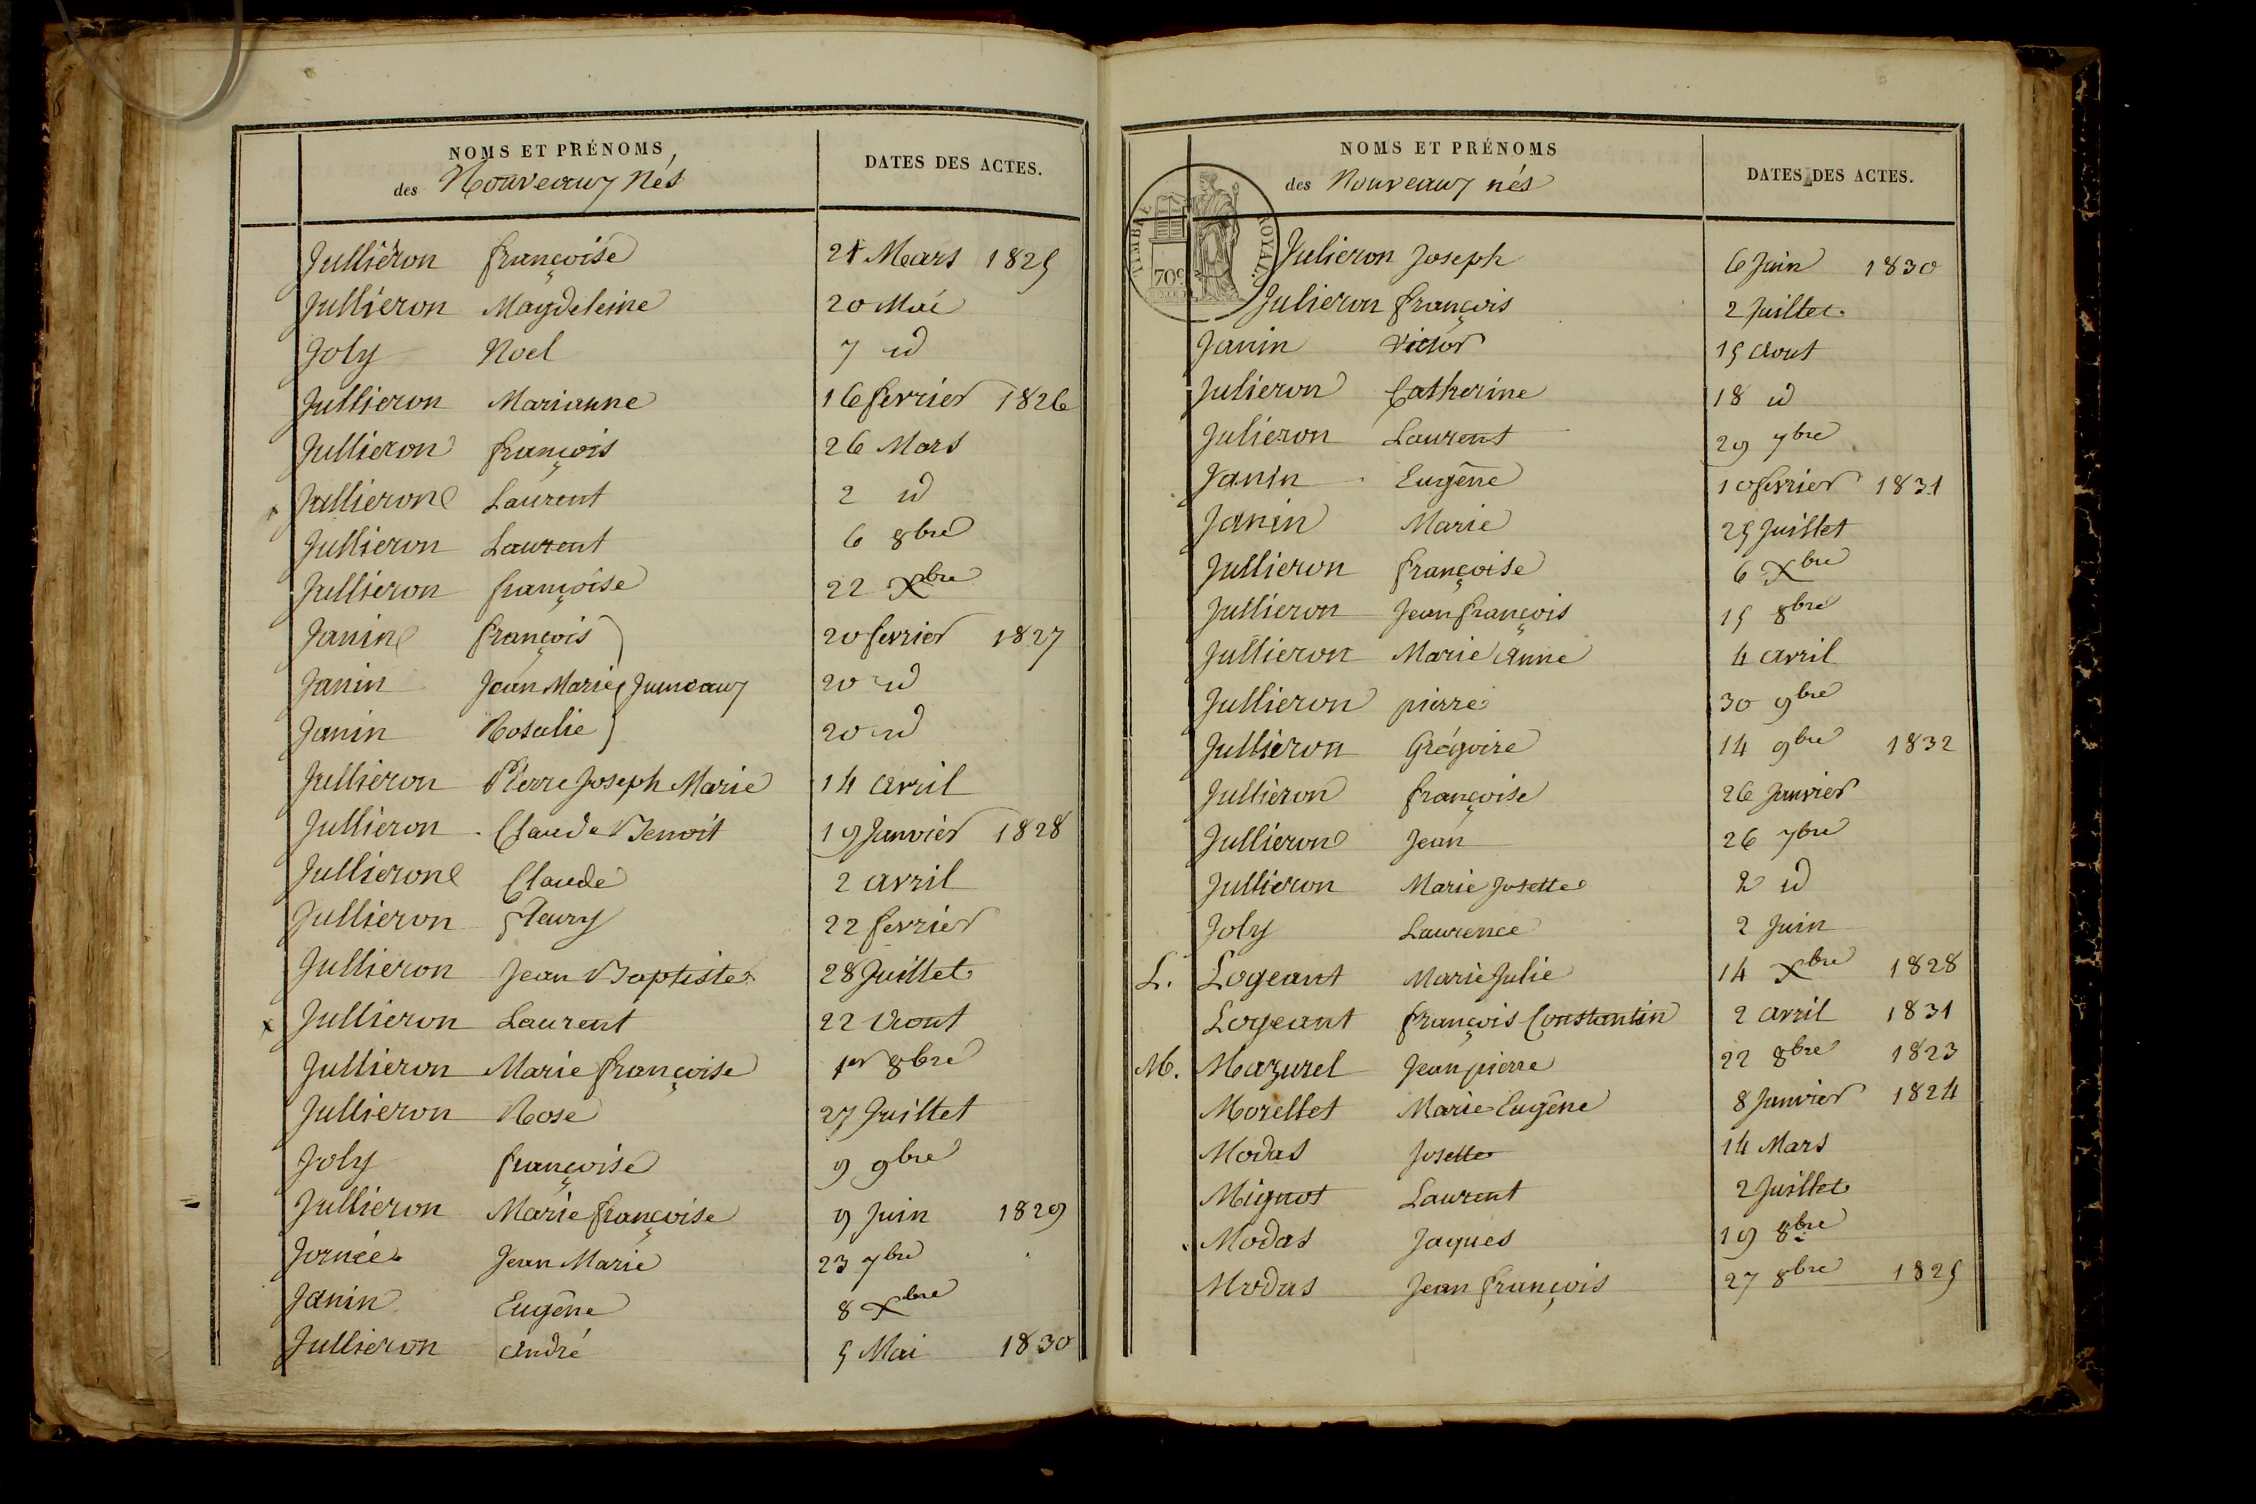 NOMS ET PRÉNOMS,
des Nouveaux Nés
DATES DES ACTES.
Jullieron françoise 21 Mars 1825
Jullieron Magdeleine 20 Mai
Joly Noel 7 id
Jullieron Marianne 16 fevrier 1826
Jullieron françois 26 Mars
Jullieron Laurent 2 id
Jullieron Laurent 6 8bre
Jullieron françoise 22 Xbre
Janin françois 20 fevrier 1827
Janin Jean Marie Jumeaux 20 id
Janin Rosalie 20 id
Jullieron Pierre Joseph Marie 14 avril
Jullieron Claude Benoit 19 Janvier 1828
Jullieron Claude 2 avril
Jullieron fleury 22 fevrier
Jullieron Jean Baptiste 28 Juillet
x Jullieron Laurent 22 Aout
Jullieron Marie françoise 1er 8bre
Jullieron Rose 27 Juillet
Joly françoise 9 9bre
Jullieron Marie françoise 9 Juin 1829
Jornée Jean Marie 23 7bre
Janin Eugêne 8 Xbre
Jullieron André 5 Mai 1830
NOMS ET PRÉNOMS
des Nouveaux nés
DATES DES ACTES.
TIMBRE ROYAL
70c
Julieron Joseph 6 Juin 1830
Julieron françois 2 Juillet
Janin Victor 15 Aout
Julieron Catherine 18 id
Julieron Laurent 29 7bre
Janin Eugêne 10 fevrier 1831
Janin Marie 25 Juillet
Jullieron françoise 6 Xbre
Jullieron Jean françois 15 8bre
Jullieron Marie Anne 4 avril
Jullieron pierre 30 9bre
Jullieron Grégoire 14 9bre 1832
Jullieron françoise 26 Janvier
Jullieron Jean 26 7bre
Jullieron Marie Josette 2 id
Joly Laurence 2 Juin
L. Logeant Marie Julie 14 Xbre 1828
Logeant françois Constantin 2 avril 1831
M. Mazurel Jean pierre 22 8bre 1823
Morellet Marie Eugêne 8 Janvier 1824
Modas Josette 14 Mars
Mignot Laurent 2 Juillet
Modas Jaques 19 8bre
Modas Jean françois 27 8bre 1825